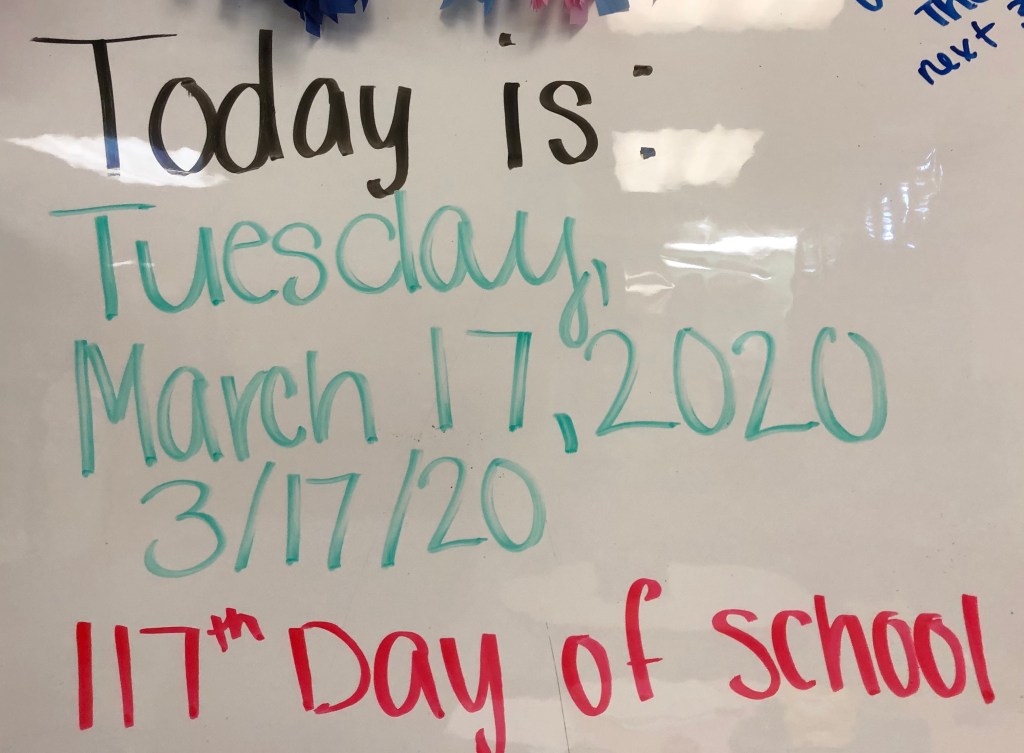 Today is:
Tuesday,
March 17, 2020
3/17/20
117th Day of school
next